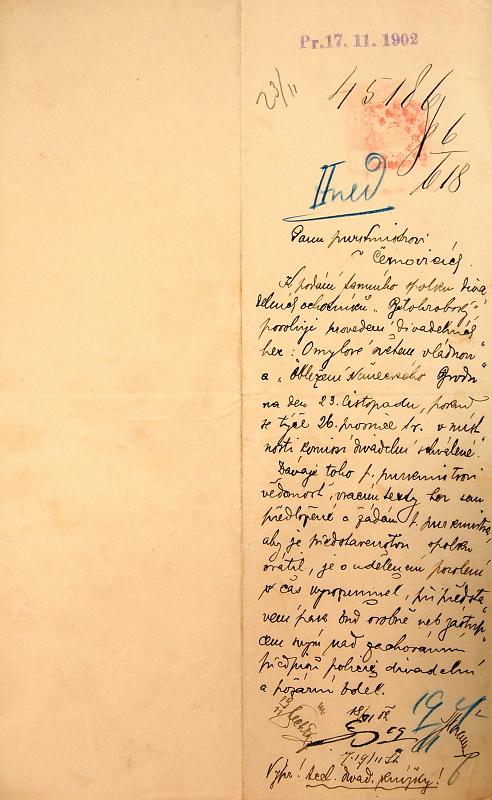 Pr. 17. 11. 1902
23/11
45186
66
618
Ihned
Panu purkmistrovi
v Černovicích.
K podání tamního spolku diva
delních ochotníků
povoluji provedení divadelních
her: Omylové světem vládnou"
a „Obležení Německého Brodu
na den 23. listopadu, pokud
se týče 26. prosince t.r. v míst
nosti komisí divadelní schválené.
Dávaje toho p. purkmistrovi
vědomost, vracím texty her sem
předložené a žádám p. purkmistra,
aby je představenstvu spolku
vrátil, je o uděleném povolení
v čas vyrozuměl, při předsta
vení pak buď osobně neb zástup
cem svým nad zachováním
předpisů policie divadelní
a požární bděl.
18/11
19/11
Vypr! sed. divad. knížky!